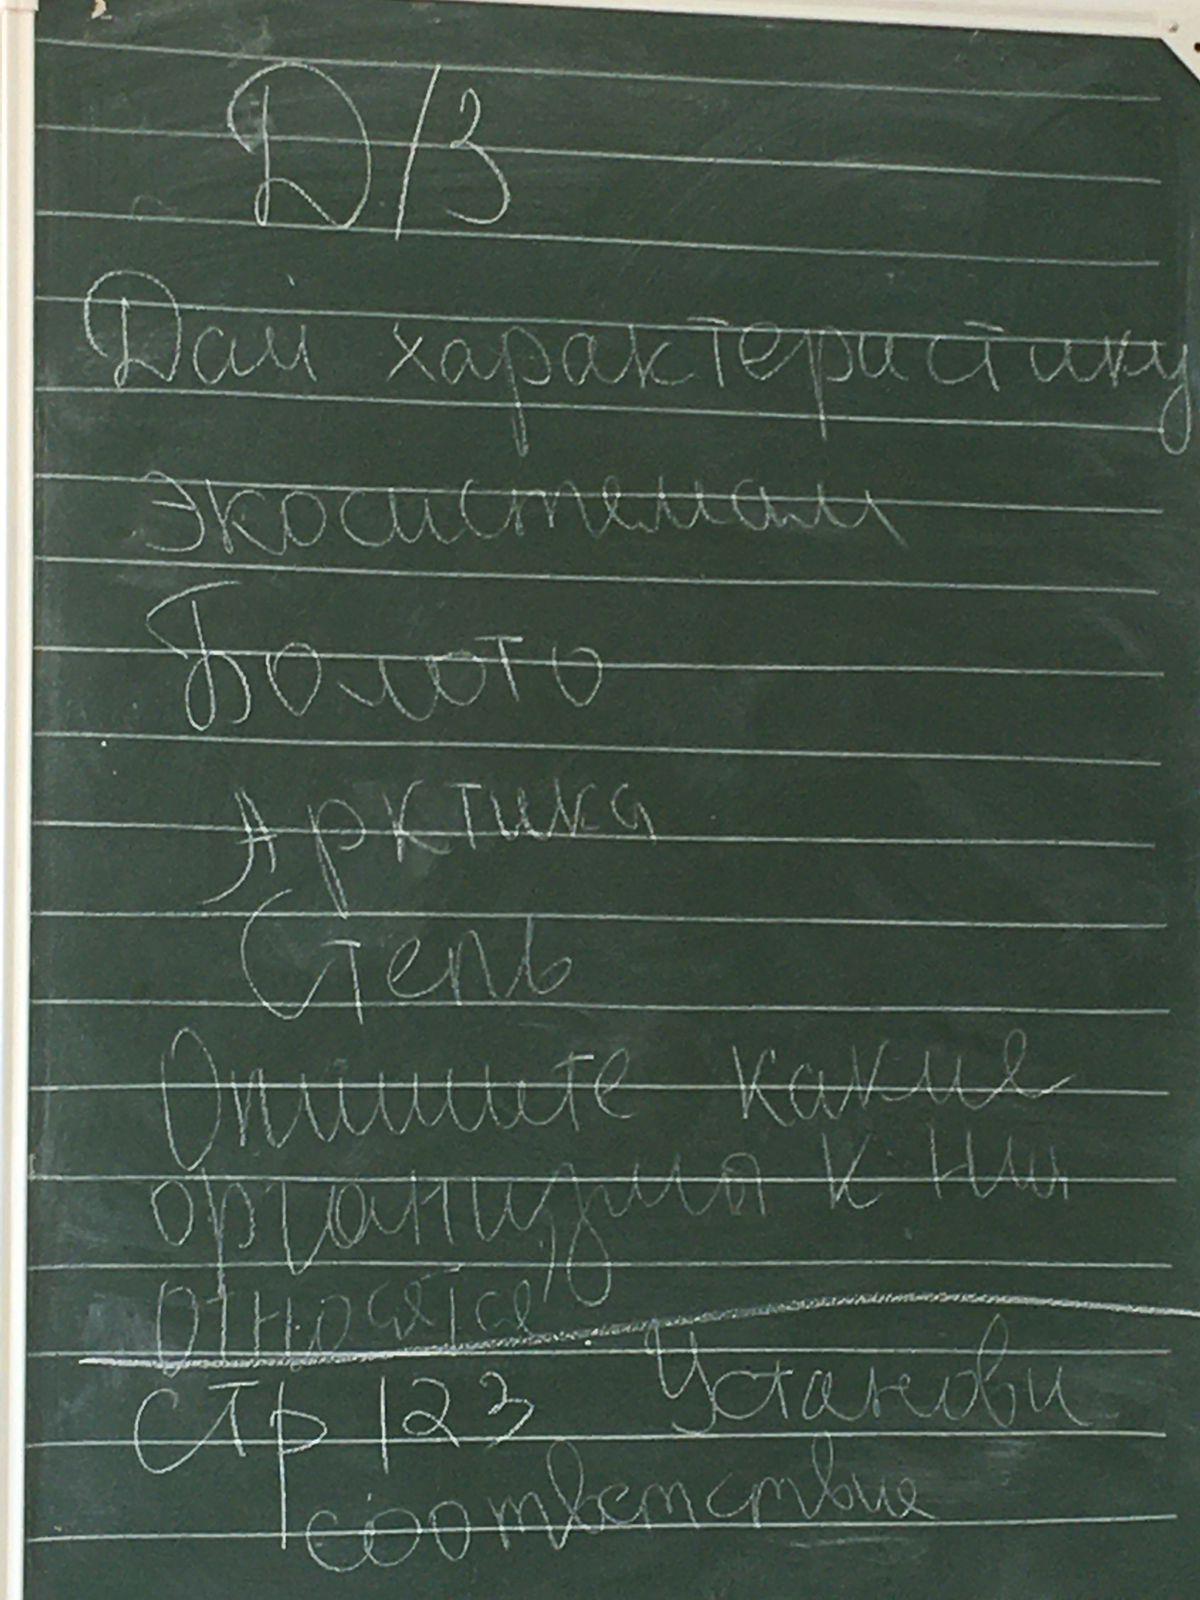 Д/З
Дай характеристику
экосистемам
Болото
Арктика
Степь
Опишите какие
организмы к ним
относятся
стр 123 Установи
соответствие